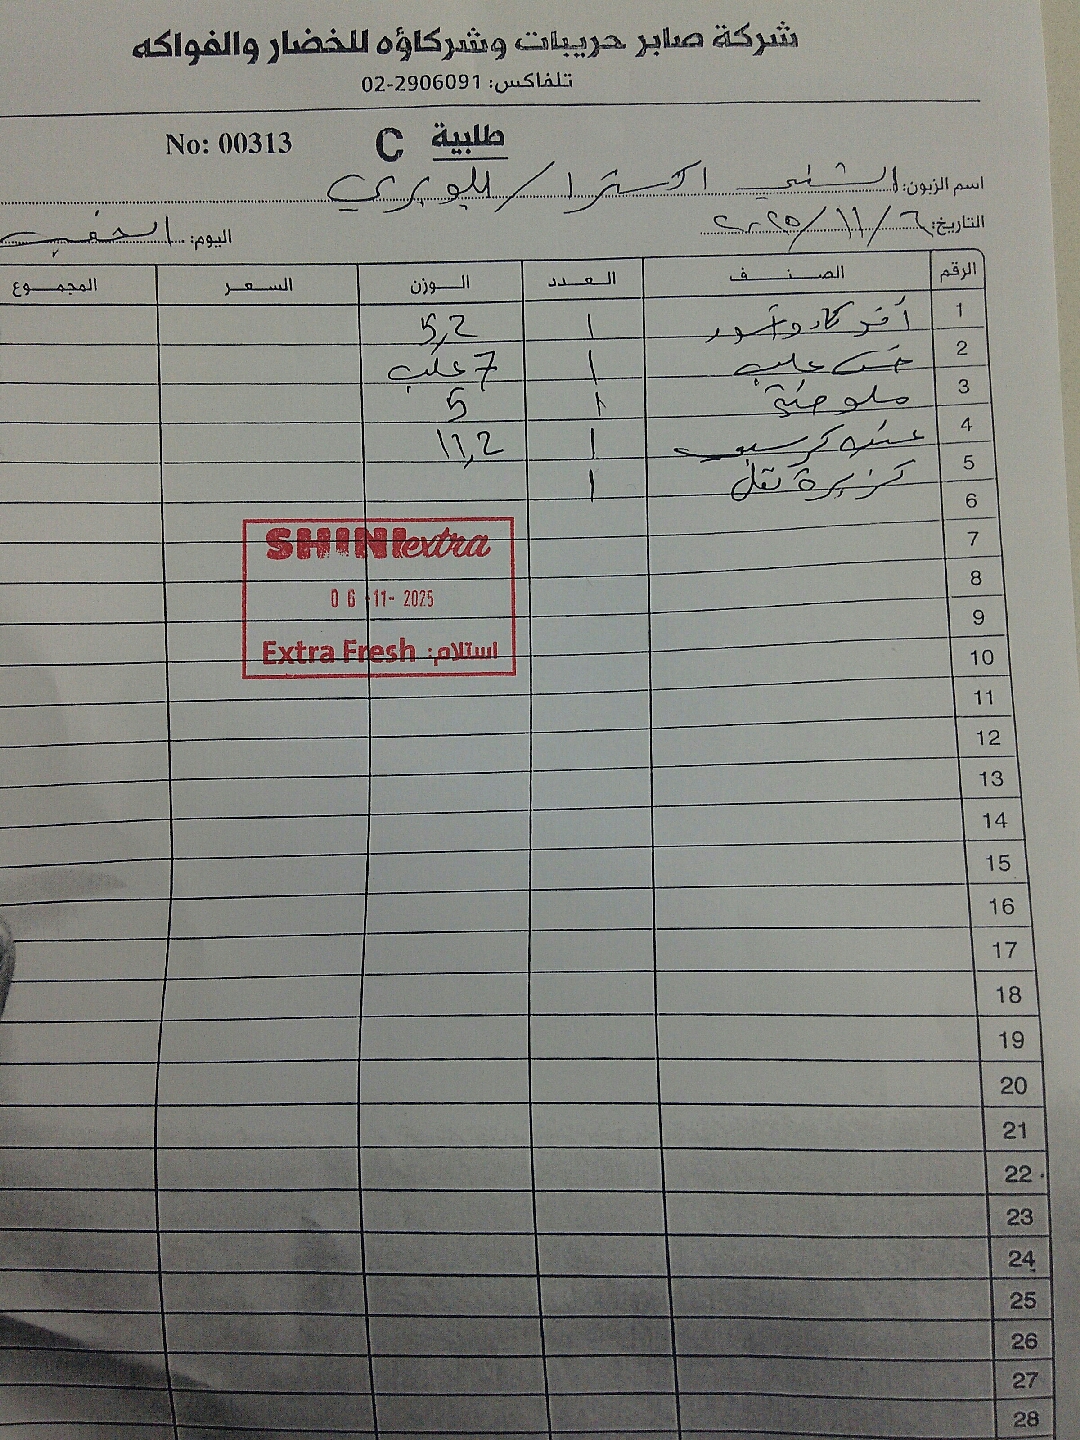 شركة صابر حريبات وشركاؤه للخضار والفواكه
تلفاكس: 02-2906091
طلبية C No: 00313
اسم الزبون: الشني اكسترا /
التاريخ: ٦/١١/٢٠٢٥ اليوم:
الرقم الصنف العدد الوزن السعر المجموع
1 أفوكادو ١ 5,2
2 خس علب ١ 7 علب
3 ملوخية ١ 5
4 عنب كرسبي ١ 11,2
5 كزبرة ١
6
7
8
9
10
11
12
13
14
15
16
17
18
19
20
21
22
23
24
25
26
27
28
SHINI extra
06-11-2025
Extra Fresh استلام: